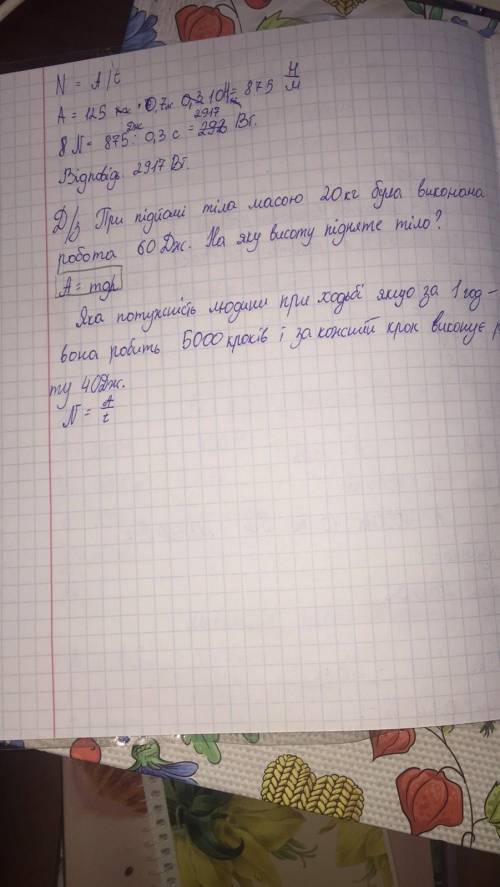 N = A/t
A = 125 · 0,7м · 10 = 875 Н/м
2917
N = 875 Дж : 0,3 с = Вт.
Відповідь 2917 Вт.
Д/з При підйомі тіла масою 20 кг була виконана
робота 60 Дж. На яку висоту підняте тіло?
A = mgh
Яка потужність людини при ходьбі якщо за 1 год -
вона робить 5000 кроків і за кожний крок виконує р
ту 40 Дж.
N = A/t